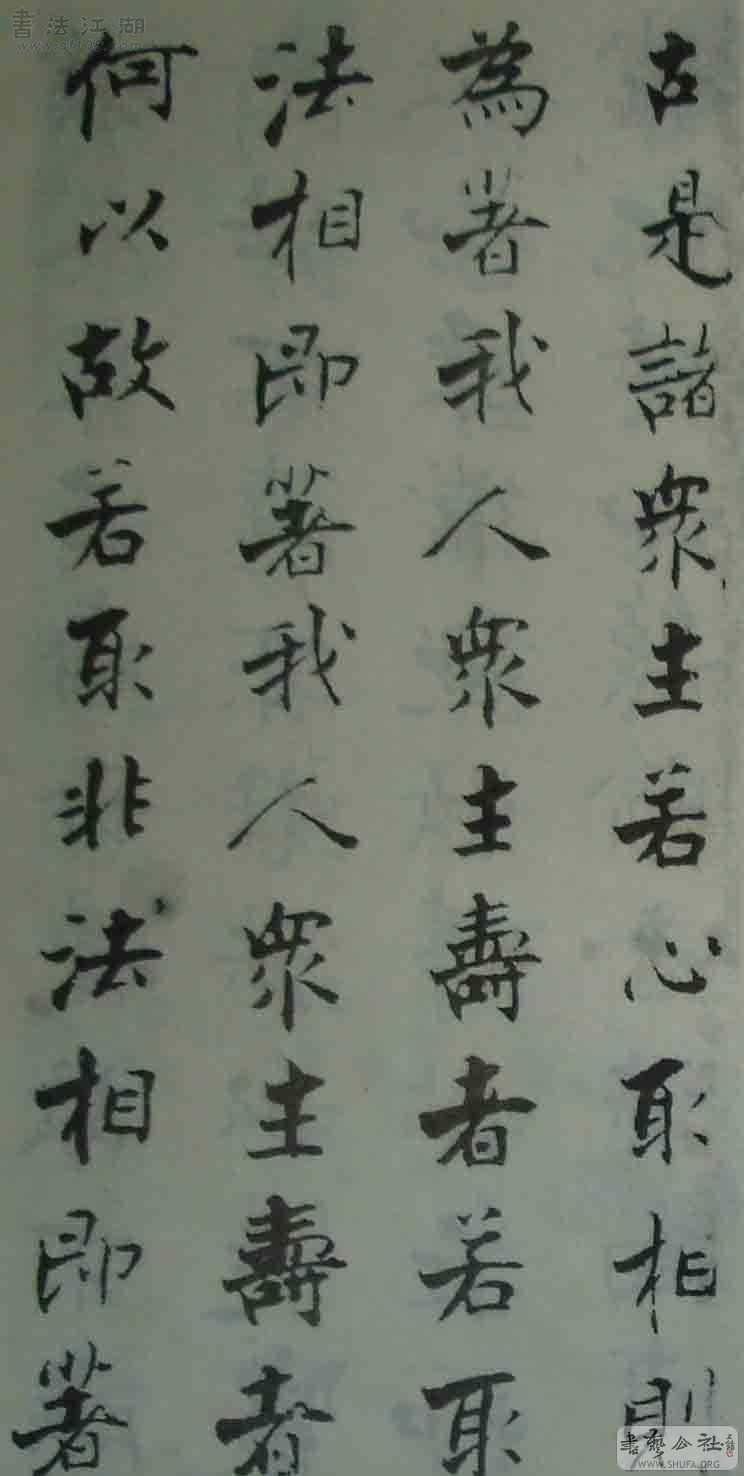 古是諸眾生若心取相則
為著我人眾生壽者若取
法相即著我人眾生壽者
何以故若取非法相即著
書法江湖
www.sf108.com
書藝公社
WWW.SHUFA.ORG